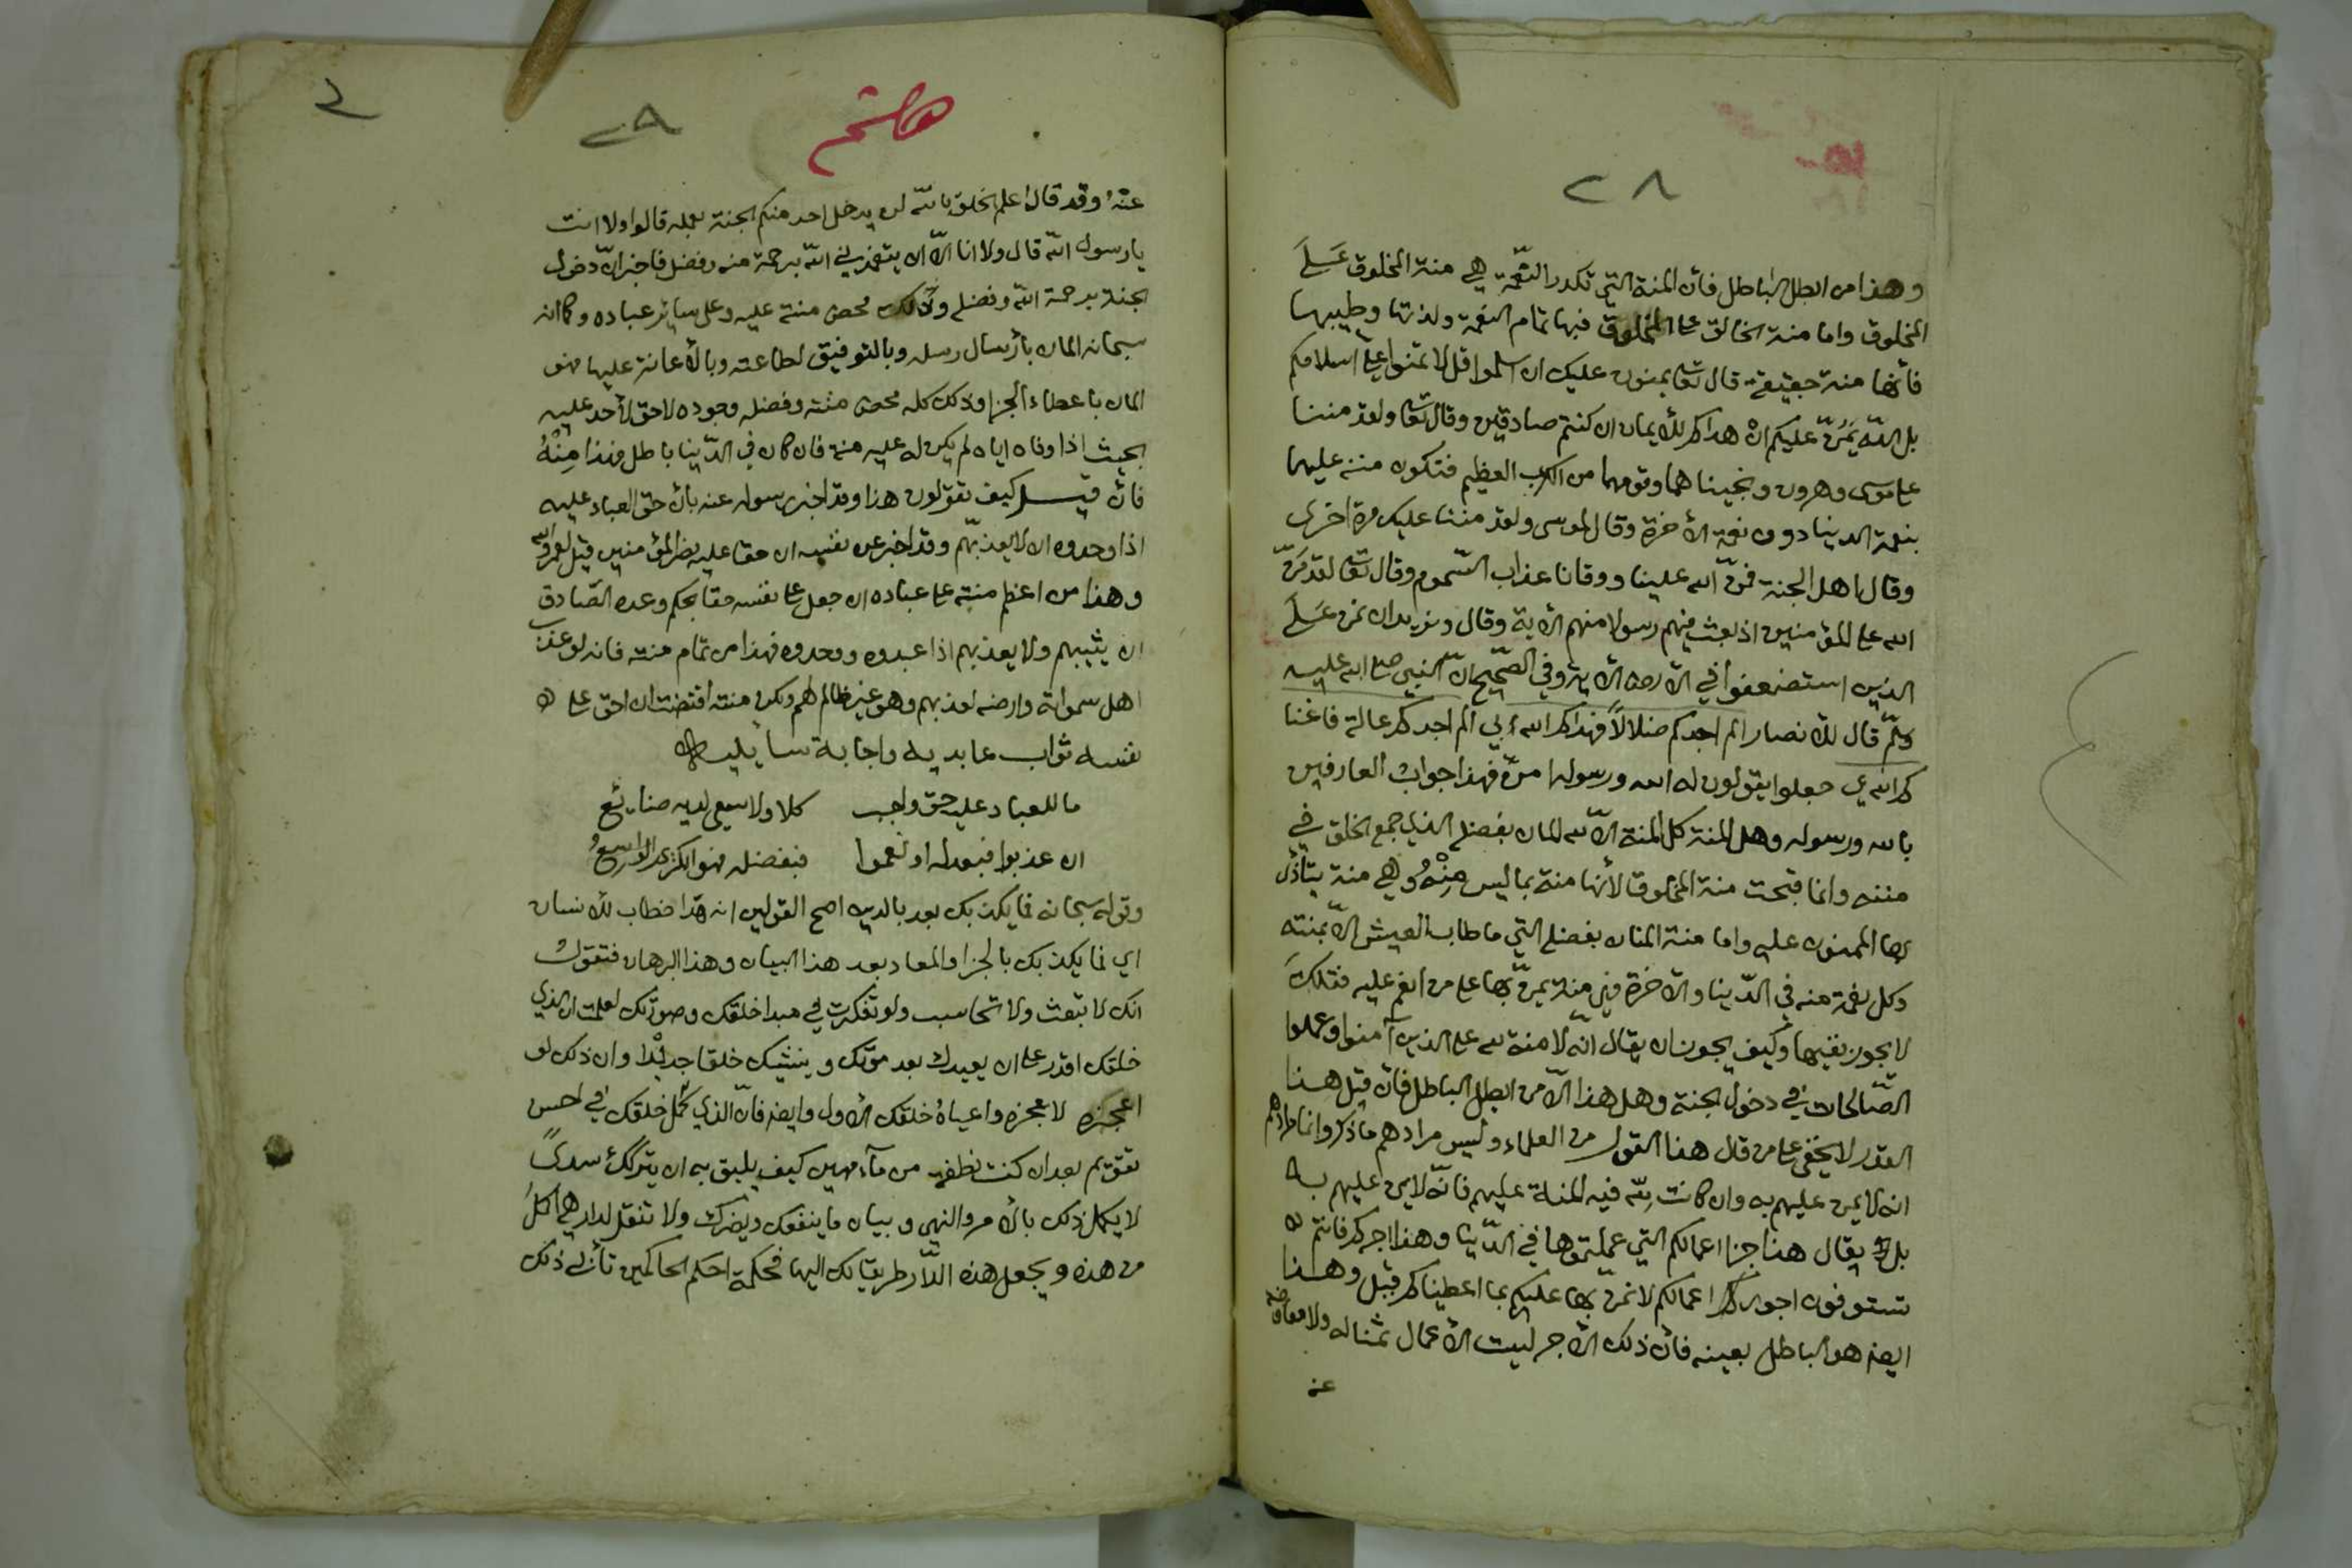 ٢٨
وهذا من ابطل الباطل فان المنة التي تكدر النعمة هي منة المخلوق على
المخلوق واما منة الخالق على المخلوق فبها تمام النعمة ولذتها وطيبها
فأنها منة حقيقة قال تعا يمنون عليك ان اسلموا قل لا تمنوا علي اسلامكم
بل الله يمنّ عليكم ان هداكم للأيمان ان كنتم صادقين وقال تعا ولقد مننا
على موسى وهرون ونجيناهما وقومهما من الكرب العظيم فتكون منته عليهما
بنعمة الدينا دون نعمة الأخرة وقال لموسى ولقد مننا عليك مرة اخرى
وقال اهل الجنة فمنّ الله علينا ووقانا عذاب السموم وقال تعا لقد منّ
الله على المؤمنين اذ بعث فيهم رسولا منهم الأية وقال ونريد ان نمن على
الذين استضعفوا في الأرض الأية وفي الصّحيح انّ النبي صلى الله عليه
وسلّم قال للأنصار الم اجدكم ضلالاً فهداكم الله بي الم اجدكم عالة فاغنا
كم الله بي جعلوا يقولون له الله ورسوله امنّ فهذا جواب العارفين
بالله ورسوله وهل المنة كل المنة الّا لله المان بفضله الذي جمع الخلق في
مننه وانما قبحت منة المخلوق لأنها منة بما ليس مِنْهُ وهي منة يتأذى
بها الممنون عليه واما منة المنان بفضله التي ما طاب العيش الّا بمنته
وكل نعمة منه في الدّينا والأخرة فهي منة يمنّ بها على من انعم عليه فتلك
لا يجوز نفيها وكيف يجوز ان يقال انّه لا منة لله على الذين آمنوا وعملوا
الصّالحات في دخول الجنة وهل هذا الّا من ابطل الباطل فان قيل هذا
القدر لا يخفى على من قال هذا القول من العلماء وليس مرادهم ما ذكر وانما مرادهم
انه لا يمن عليهم به وان كانت لله فيه المنة عليهم فانّه لا يمن عليهم به
بل يقال هذا جزا اعمالكم التي عملتموها في الدّينا وهذا اجركم فانتم
تستوفون اجور اعمالكم لا نمن بها عليكم بما اعطيناكم قيل وهذا
ايضا هو الباطل بعينه فان ذلك الأجر ليست الأعمال ثمنا له ولا معاوضة
عنه
٢٩
عنهُ وقد قال اعلم الخلق بالله لن يدخل احد منكم الجنة بعمله قالوا ولا انت
يا رسول الله قال ولا انا الّا ان يتغمدني الله برحمة منه وفضل فاخبر انّ دخول
الجنة برحمة الله وفضله وذلك محض منته عليه وعلى سائر عباده وكما انه
سبحانه المان بأرسال رسله وبالتوفيق لطاعته وبالأعانة عليها فهو
المان باعطاء الجزا وذلك كله محض منته وفضله وجوده لا حق لأحد عليه
بحيث اذا وفاه اياه لم يكن له عليه منة فان كان في الدّينا باطل فهذا مِنْهُ
فان قيل كيف تقولون هذا وقد اخبر رسوله عنه بان حق العباد عليه
اذا وحدوه ان لا يعذبهّم وقد اخبر عن نفسه ان حقا عليه نصر المؤمنين قيل لعمر الله
وهذا من اعظم منته على عباده ان جعل على نفسه حقا بحكم وعده الصّادق
ان يثيبهم ولا يعذبهم اذا عبدوه ووحدوه فهذا من تمام منته فانه لو عذب
اهل سمواته وارضه لعذبهم وهو غير ظالم لهم ولكن منته اقتضت ان احق على
نفسه ثواب عابديه واجابة سائليه
ما للعباد عليه حق واجب كلا ولا سعي لديه ضائع
ان عذبوا فبعدله او نعموا فبفضله فهو الكريم الواسعُ
وقوله سبحانه فما يكذبك بعد بالدين اصح القولين ان هذا خطاب للأنسان
اي فما يكذبك بالجزا والمعاد بعد هذا البيان وهذا البرهان فتقول
انك لا تبعث ولا تحاسب ولو تفكرت في مبدا خلقك وصورتك لعلمت ان الذي
خلقك اقدر على ان يعيدك بعد موتك وينشيك خلقا جديدا وان ذلك لو
اعجزه لاعجزه واعياهُ خلقك الأول وايضا فانّ الذي كمّل خلقك في احسن
تقويم بعد ان كنت نطفة من مآء مهين كيف يليق به ان يتركك سدىً
لا يكمل ذلك بالأمر والنهي وبيان ما ينفعك ويضرك ولا تنقل لدار هي اكمل
من هذه ويجعل هذه الدّار طريقا لك اليها فحكمة احكم الحاكمين تأبى ذلك